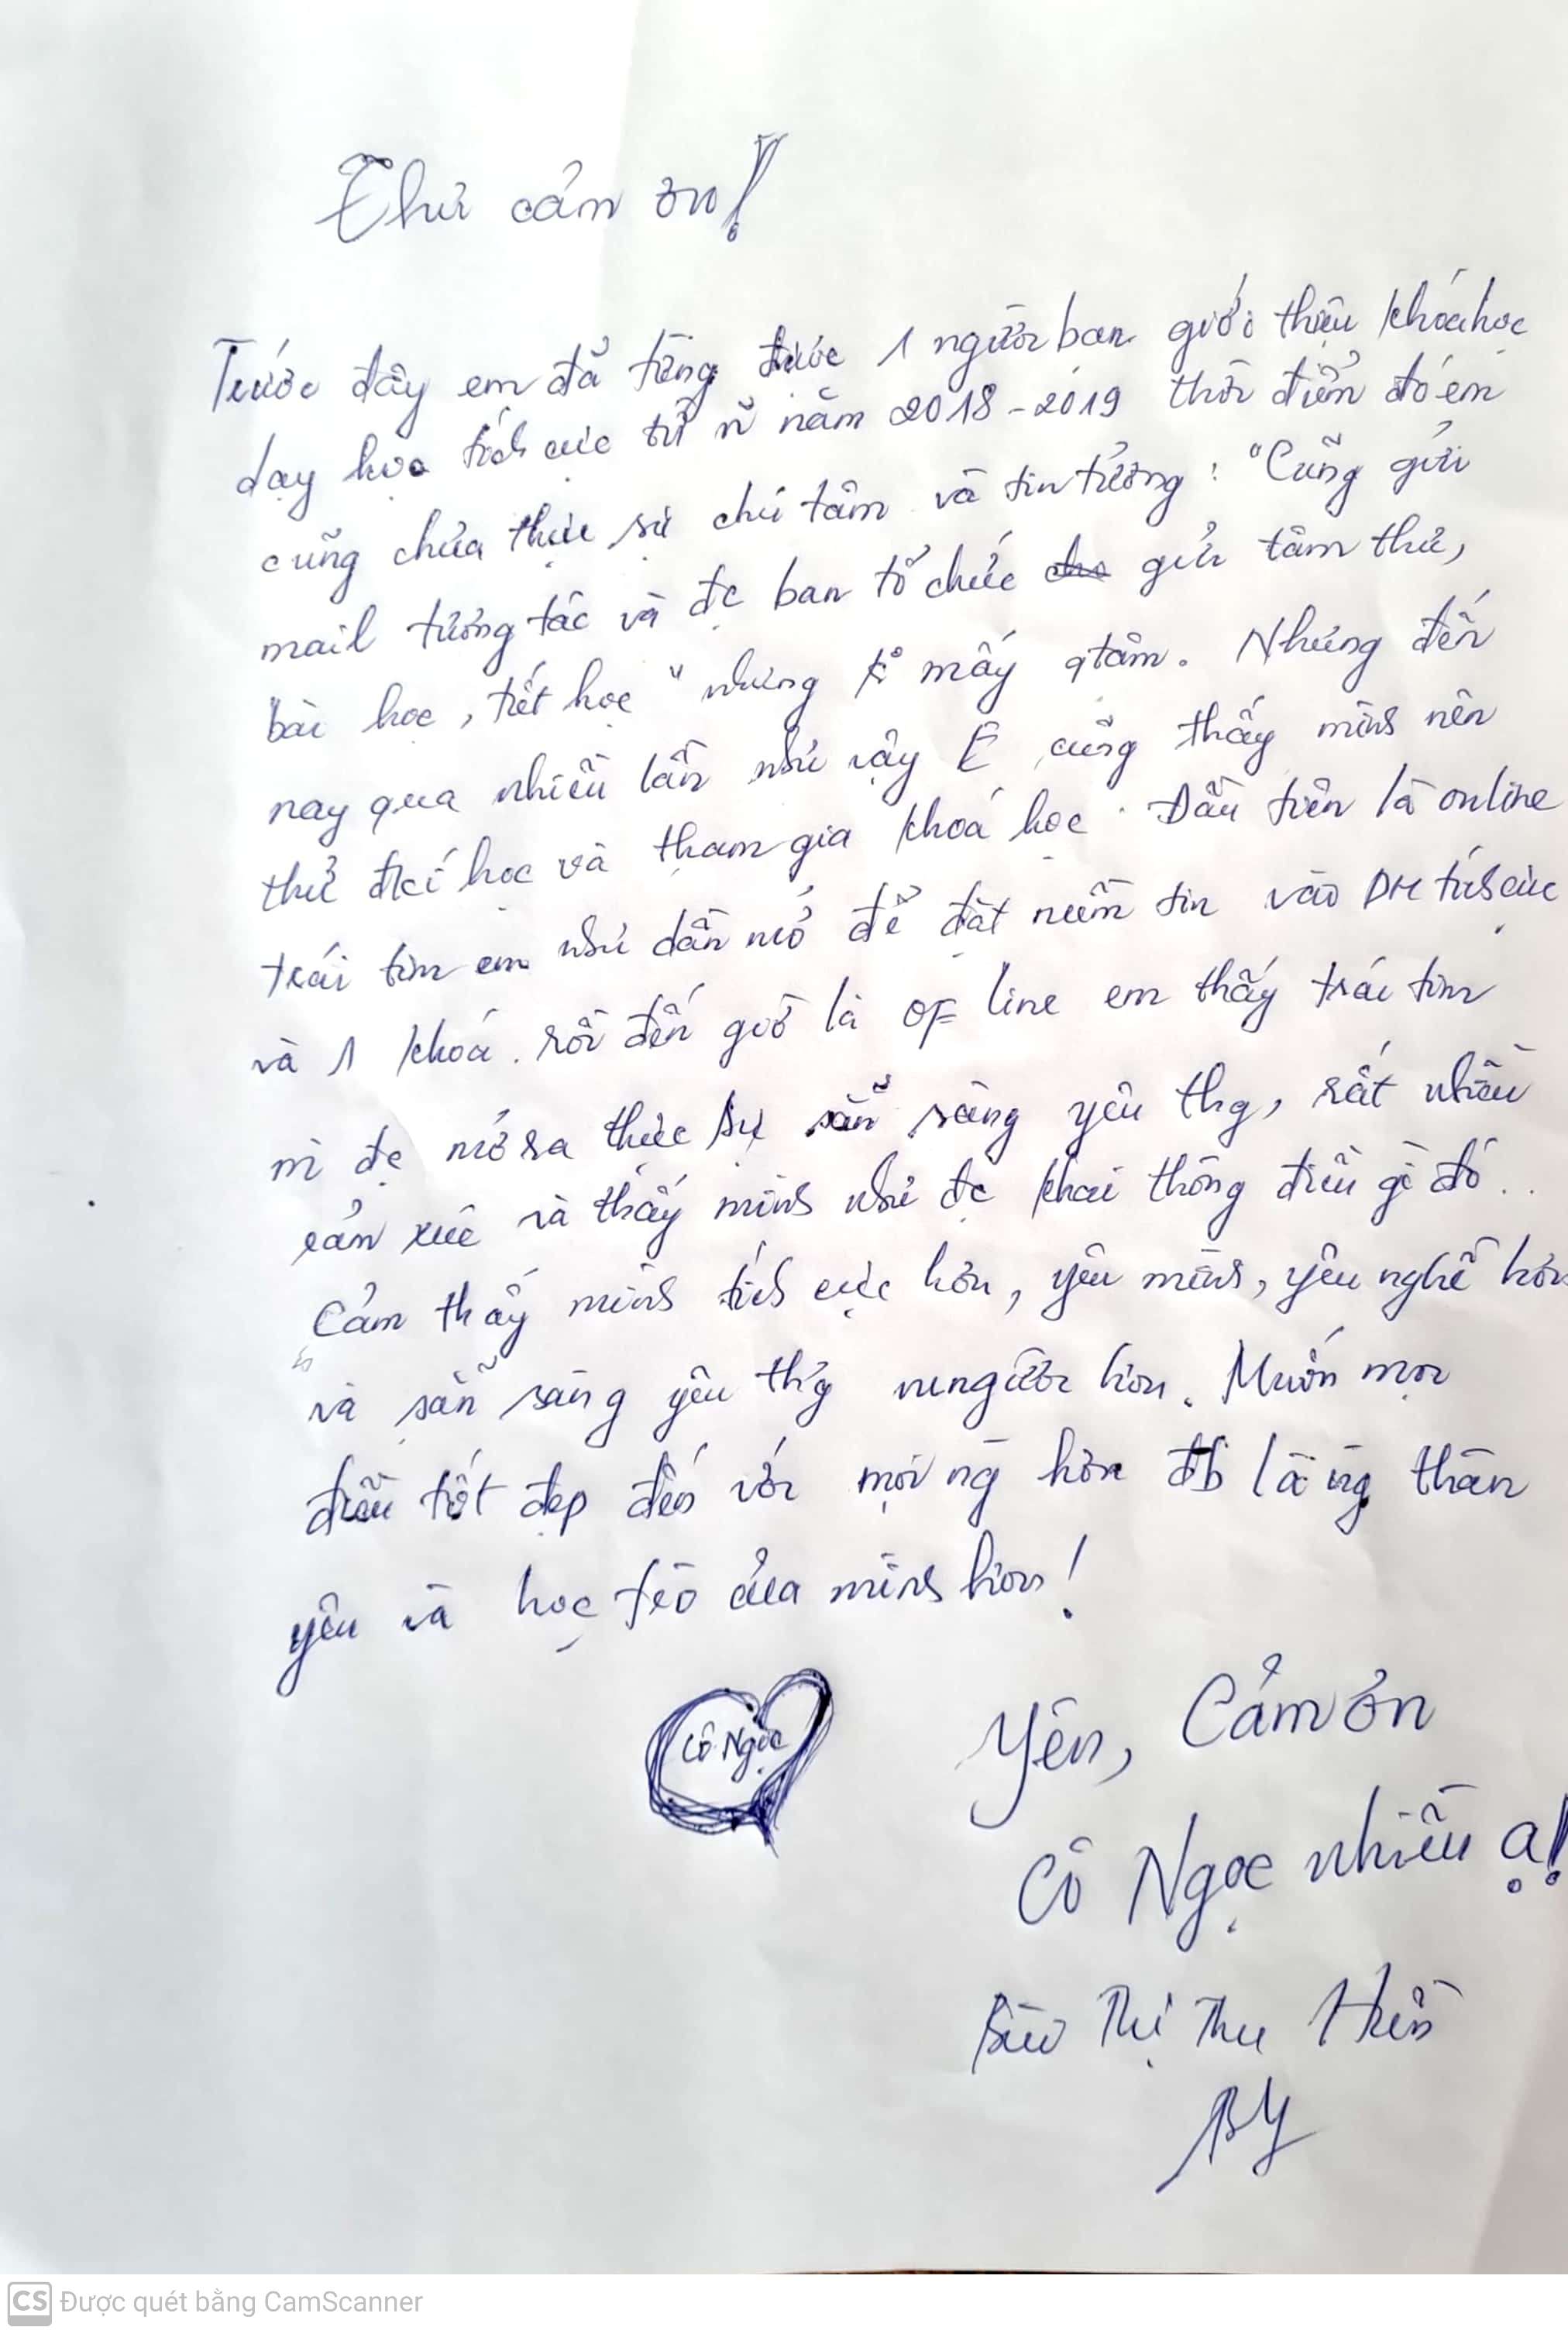 Thư cảm ơn!
Trước đây em đã từng được 1 người bạn giới thiệu khóa học
dạy học tích cực từ năm 2018-2019 thời điểm đó em
cũng chưa thực sự chú tâm và tin tưởng: "Cũng gửi
mail tương tác và đc ban tổ chức cho gửi tâm thư,
bài học, tiết học" nhưng k° mấy qtâm. Nhưng đến
nay qua nhiều lần như vậy E cũng thấy mình nên
thử đkí học và tham gia khoá học. Đầu tiên là online
trái tim em như dần mở để đặt niềm tin vào DH tích cực
và 1 khoá. rồi đến giờ là OF line em thấy trái tim
m đc mở ra thực sự sẵn sàng yêu thg, rất nhiều
cảm xúc và thấy mình như đc khai thông điều gì đó..
Cảm thấy mình tích cực hơn, yêu mình, yêu nghề hơn
và sẵn sàng yêu thg mngười hơn. Muốn mọi
điều tốt đẹp đến với mọi ng hơn đb là ng thân
yêu và học trò của mình hơn!
Cô Ngọc
Yên, Cảm ơn
Cô Ngọc nhiều ạ!
Thị Thu Hiền
BY
CS Được quét bằng CamScanner